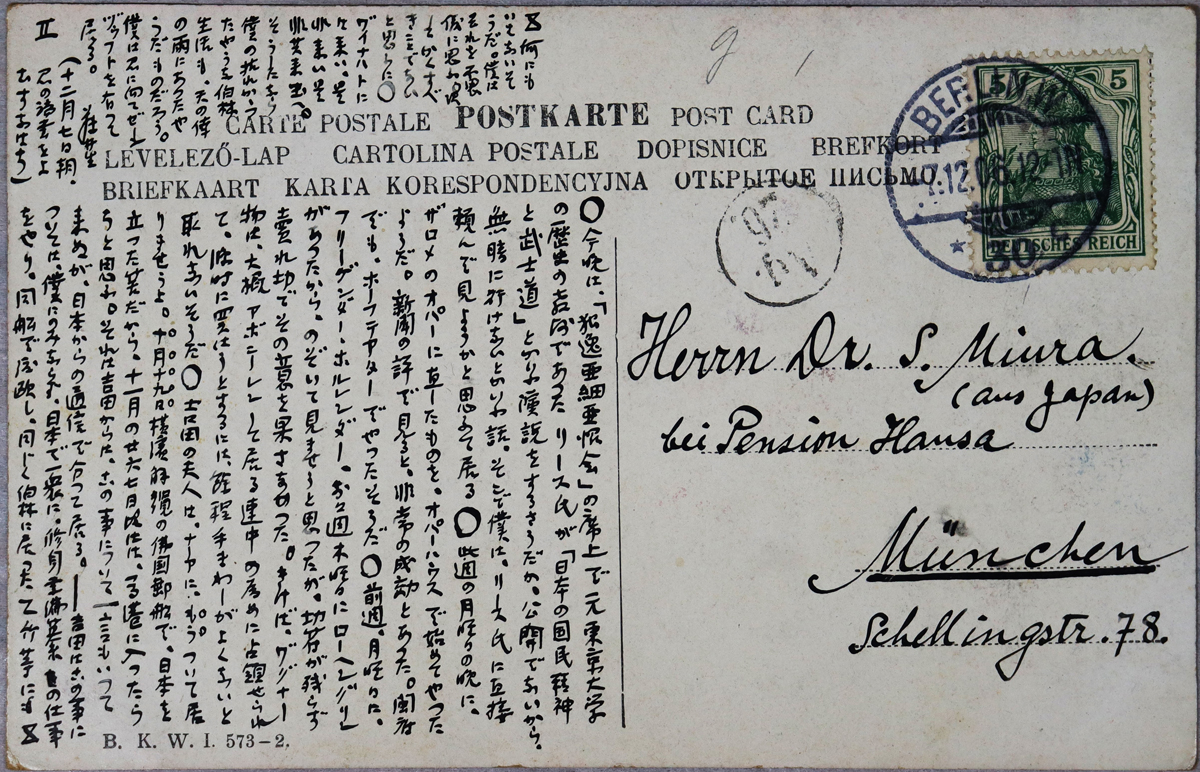 CARTE POSTALE POSTKARTE POST CARD
LEVELEZŐ-LAP CARTOLINA POSTALE DOPISNICE BREFKORT
BRIEFKAART KARTA KORESPONDENCYJNA ОТКРЫТОЕ ПИСЬМО
5 5
DEUTSCHES REICH
BERLIN.W.
7.12.06.12-1N
* 30 c
Herrn Dr. S. Miura.
(aus Japan)
bei Pension Hansa
München
Schellingstr. 78.
〇今晩は、「独逸亜細亜協会」の席上で元東京大学
の歴史の教師であったリース氏が「日本の国民精神
と武士道」とかいふ演説をするさうだが、公開でないから、
無暗に行けないとかいふ話。そこで僕は、リース氏に直接
頼んで見ようかと思ふて居る〇此週の月曜の晩に、
ザロメのオパーに直したものを、オパーハウスで始めてやった
ようだ。新聞の評で見ると、非常の成功とあった。
でも、ホーフテアターでやったそうだ〇前週、月曜には、
フリーゲンダー・ホルレンダー、週木曜にローヘングリン
があったから、のぞいて見ませうと思ったが、切符が残らず
売れ切でその意を果さなかった。きけば、ワグナー
物は、大概アボニーレンして居る連中の為めに占領せられ
て、臨時に買はうとするには、余程手まわしがよくないと
取れないそうだ〇吉田の夫人は、もうついて居
りませうよ。十月十九日横浜解纜の仏国郵船で、日本を
立った筈だから、十一月の廿六七日比には、馬港に入ったら
うと思ふ。それは吉田からは、この事について一言もいって
来ぬが、日本からの通信で分って居る。—吉田はこの事に
ついては、僕にのみならず、日本で一衆に、修身の仕事
をやり、同船で渡欧し、同じく伯林に居った乙竹等にも
何にも
いてないそ
うだ。僕は
それを不思
儀に思わぬ
ことであら
と思ふ〇
ワイナハトに
は来い。是
非来い是
非共来玉へ。
そうしたら、
僕の枯れかゝつ
たやうな伯林
生活も、天の俸
の雨にあつたや
うだものだろう。
僕は君に向てゼー
ンズフトを有つて
居る。
(十二月七日朝。
II
B. K. W. I. 573-2.